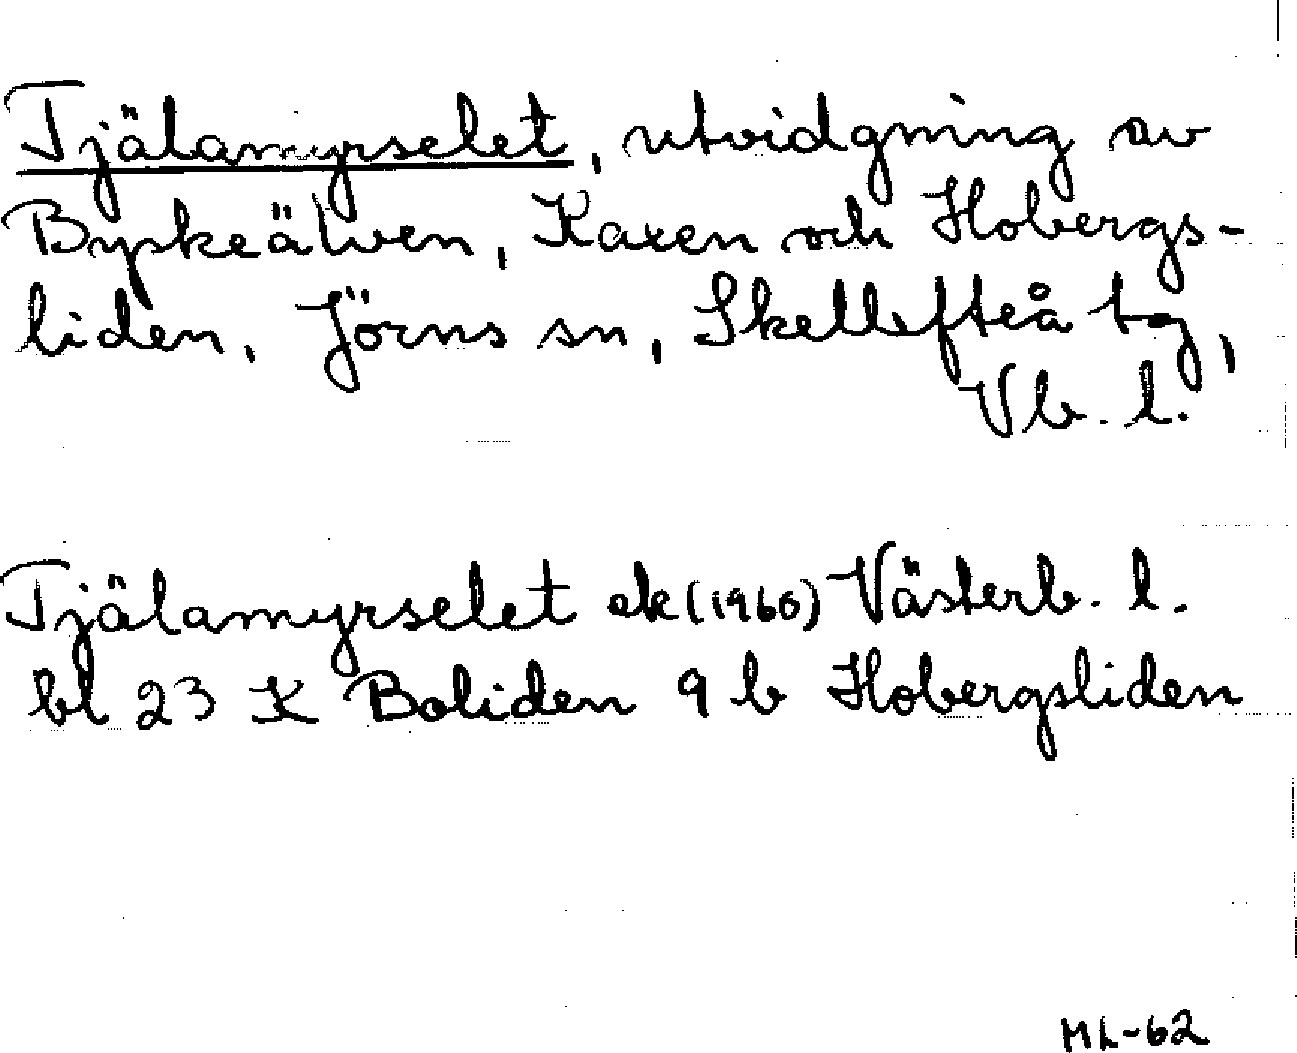 Tjälamyrselet, utvidgning av
Byskeälven, Kaxen och Hobergs-
liden, Jörns sn, Skellefteå tg,
Vb. l.
Tjälamyrselet ek (1960) Västerb. l.
bl 23 K Boliden 9 b Hobergsliden
ML-62